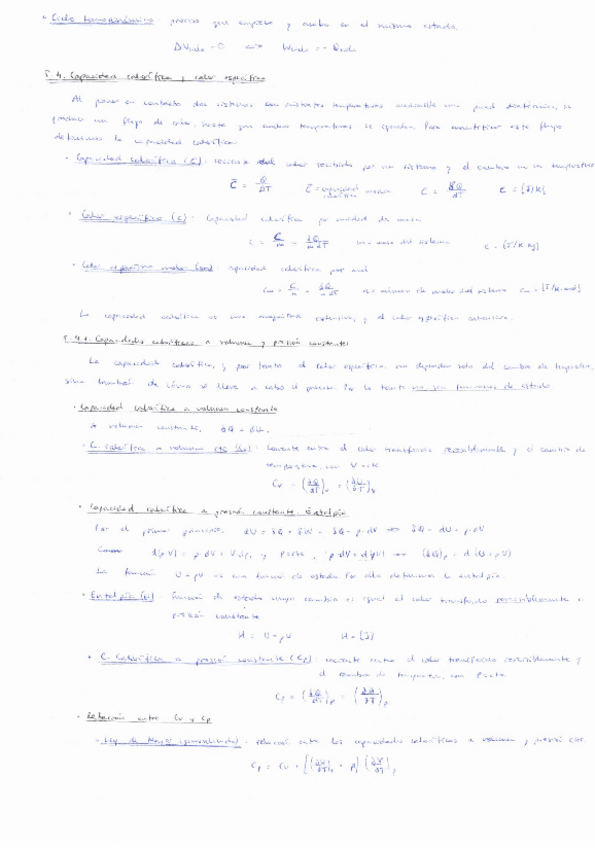 • Ciclo termodinámico: proceso que empieza y acaba en el mismo estado.
ΔUciclo = 0 ⟺ Wciclo = - Qciclo
T.4. Capacidad calorífica y calor específico
Al poner en contacto dos sistemas con distintas temperaturas mediante una pared diatérmica, se
produce un flujo de calor, hasta que ambas temperaturas se igualan. Para cuantificar este flujo
definimos la capacidad calorífica
• Capacidad calorífica (C): cociente del calor recibido por un sistema y el cambio en su temperatura
C̄ = Q/ΔT C̄ = capacidad calorífica media C = δQ/dT C = [J/K]
• Calor específico (c): Capacidad calorífica por unidad de masa
c = C/m = δQ/m dT m = masa del sistema c = [J/K kg]
• Calor específico molar (cm): capacidad calorífica por mol
cm = C/n = δQ/n dT n = número de moles del sistema cm = [J/K·mol]
La capacidad calorífica es una magnitud extensiva, y el calor específico intensiva.
T.4.1. Capacidades caloríficas a volumen y presión constantes
La capacidad calorífica, y por tanto el calor específico, no dependen solo del cambio de temperatura,
sino también de cómo se lleve a cabo el proceso. Por lo tanto no son funciones de estado
• Capacidad calorífica a volumen constante
A volumen constante, δQ = dU.
• C. calorífica a volumen cte (Cv): cociente entre el calor transferido reversiblemente y el cambio de
temperatura, con V = cte
Cv = (δQ/dT)v = (∂U/∂T)v
• Capacidad calorífica a presión constante. Entalpía
Por el primer principio, dU = δQ + δW = δQ - p·dV ⟹ δQ = dU + p·dV
Como d(pV) = p·dV + V·dp, y P = cte, p·dV = d(pV) ⟹ (δQ)p = d(U + pV)
La función U + pV es una función de estado. Por ello definimos la entalpía.
• Entalpía (H): función de estado cuyo cambio es igual al calor transferido reversiblemente a
presión constante
H = U + pV H = [J]
• C. Calorífica a presión constante (Cp): cociente entre el calor transferido reversiblemente y
el cambio de temperatura, con P = cte
Cp = (δQ/dT)p = (∂H/∂T)p
• Relación entre Cv y Cp
• Ley de Mayer (generalizada): relación entre las capacidades caloríficas a volumen y presión cte.
Cp = Cv + [(∂U/∂V)T + p] (∂V/∂T)p